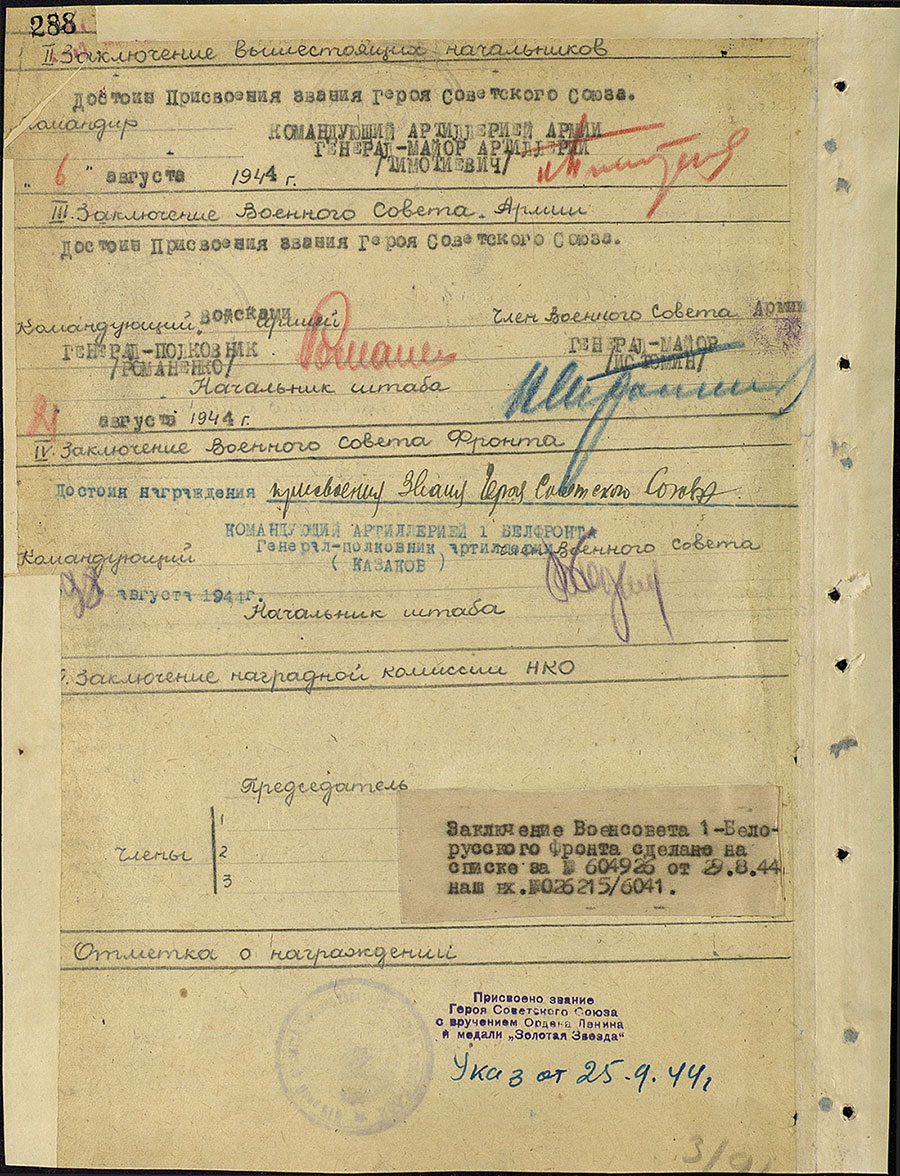 288
II Заключение вышестоящих начальников
Достоин Присвоения звания Героя Советского Союза.
Командир
КОМАНДУЮЩИЙ АРТИЛЛЕРИЕЙ АРМИИ
ГЕНЕРАЛ-МАЙОР АРТИЛЛЕРИИ
/ТИМОТИЕВИЧ/
"6" августа 1944 г.
III. Заключение Военного Совета Армии
Достоин Присвоения звания Героя Советского Союза.
Командующий войсками армией
ГЕНЕРАЛ-ПОЛКОВНИК
/РОМАНЕНКО/
Член Военного Совета Армии
ГЕНЕРАЛ-МАЙОР
/ИСТОМИН/
Начальник штаба
августа 1944 г.
IV. Заключение Военного Совета Фронта
Достоин награждения присвоения Звания Героя Советского Союза
КОМАНДУЮЩИЙ АРТИЛЛЕРИЕЙ 1 БЕЛФРОНТА
Генерал-полковник артиллерии
( КАЗАКОВ )
Командующий
Военного совета
августа 1944г.
Начальник штаба
. Заключение наградной комиссии НКО
Председатель
Члены
1
2
3
Заключение Военсовета 1-Бело-
русского Фронта сделано на
списке за № 604926 от 29.8.44
наш вх.№026215/6041.
Отметка о награждении
Присвоено звание
Героя Советского Союза
с вручением Ордена Ленина
и медали „Золотая Звезда“
Указ от 25.9.44г